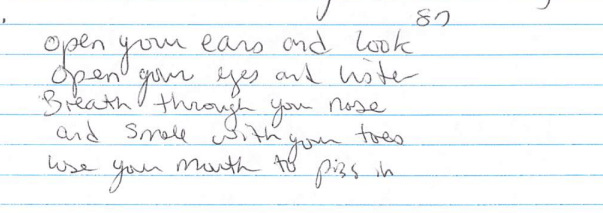 87
open your ears and look
open your eyes and listen
Breath through you nose
and smole with your toes
use your mouth to piss in